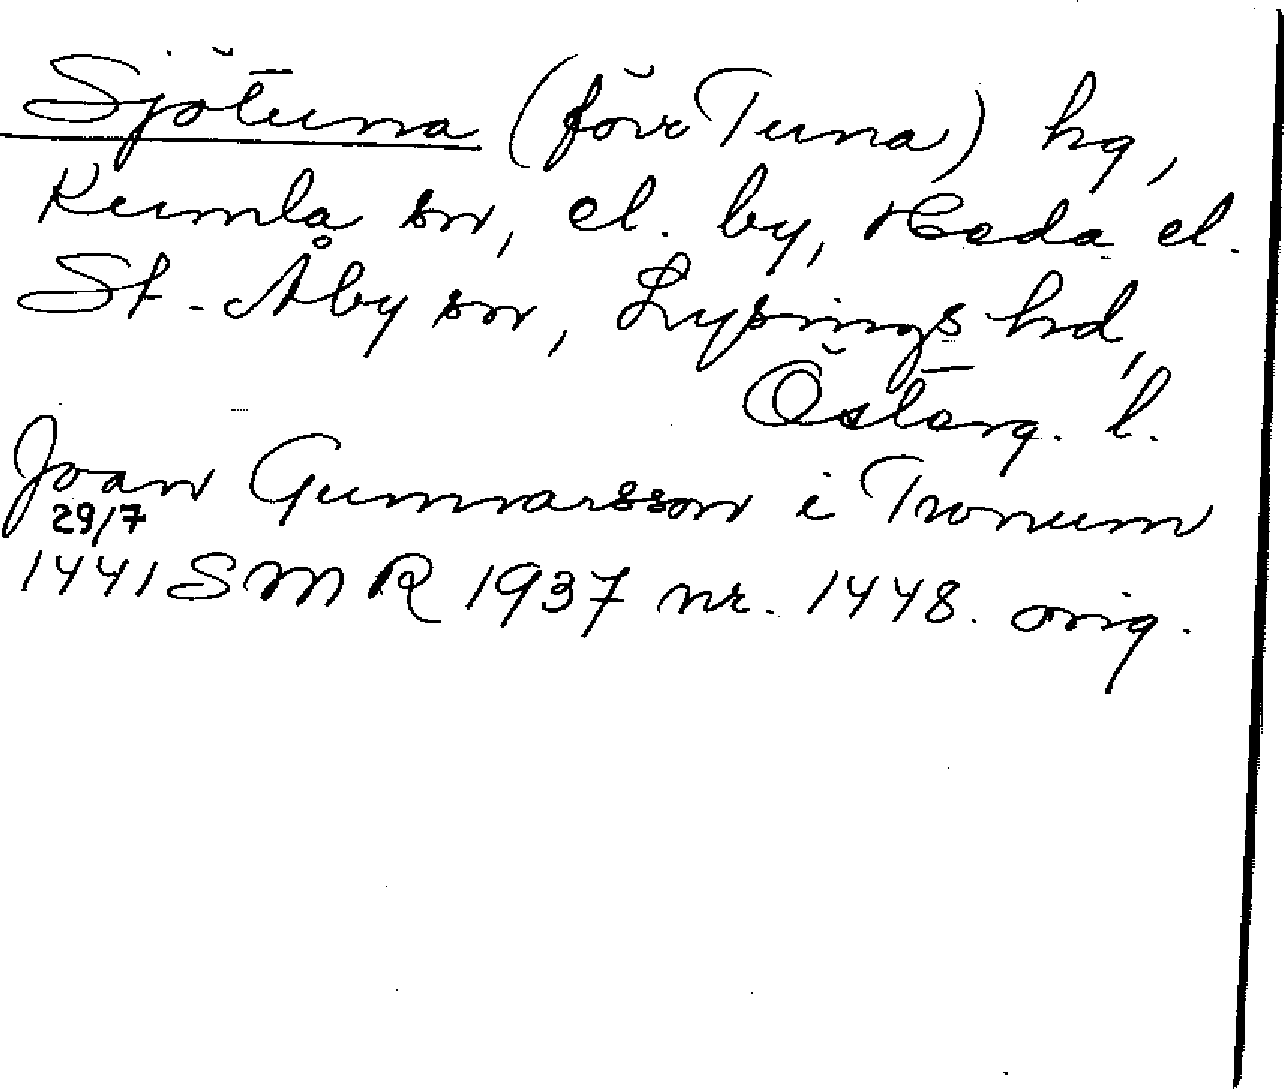 Sjötuna (förr Tuna) hg,
Kumla sn, el. by, Heda el.
St. Åby sn, Lysings hd,
Östorg. l.
Joan Gunnarsson i Tronum
29/7
1441 SMR 1937 nr. 1448. orig.